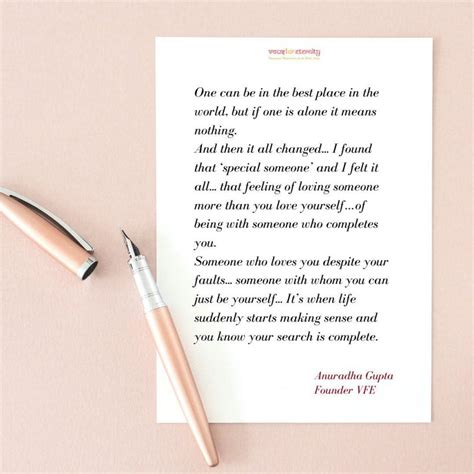 vowsforeternity
One can be in the best place in the
world, but if one is alone it means
nothing.
And then it all changed... I found
that ‘special someone’ and I felt it
all... that feeling of loving someone
more than you love yourself...of
being with someone who completes
you.
Someone who loves you despite your
faults... someone with whom you can
just be yourself... It’s when life
suddenly starts making sense and
you know your search is complete.
Anuradha Gupta
Founder VFE